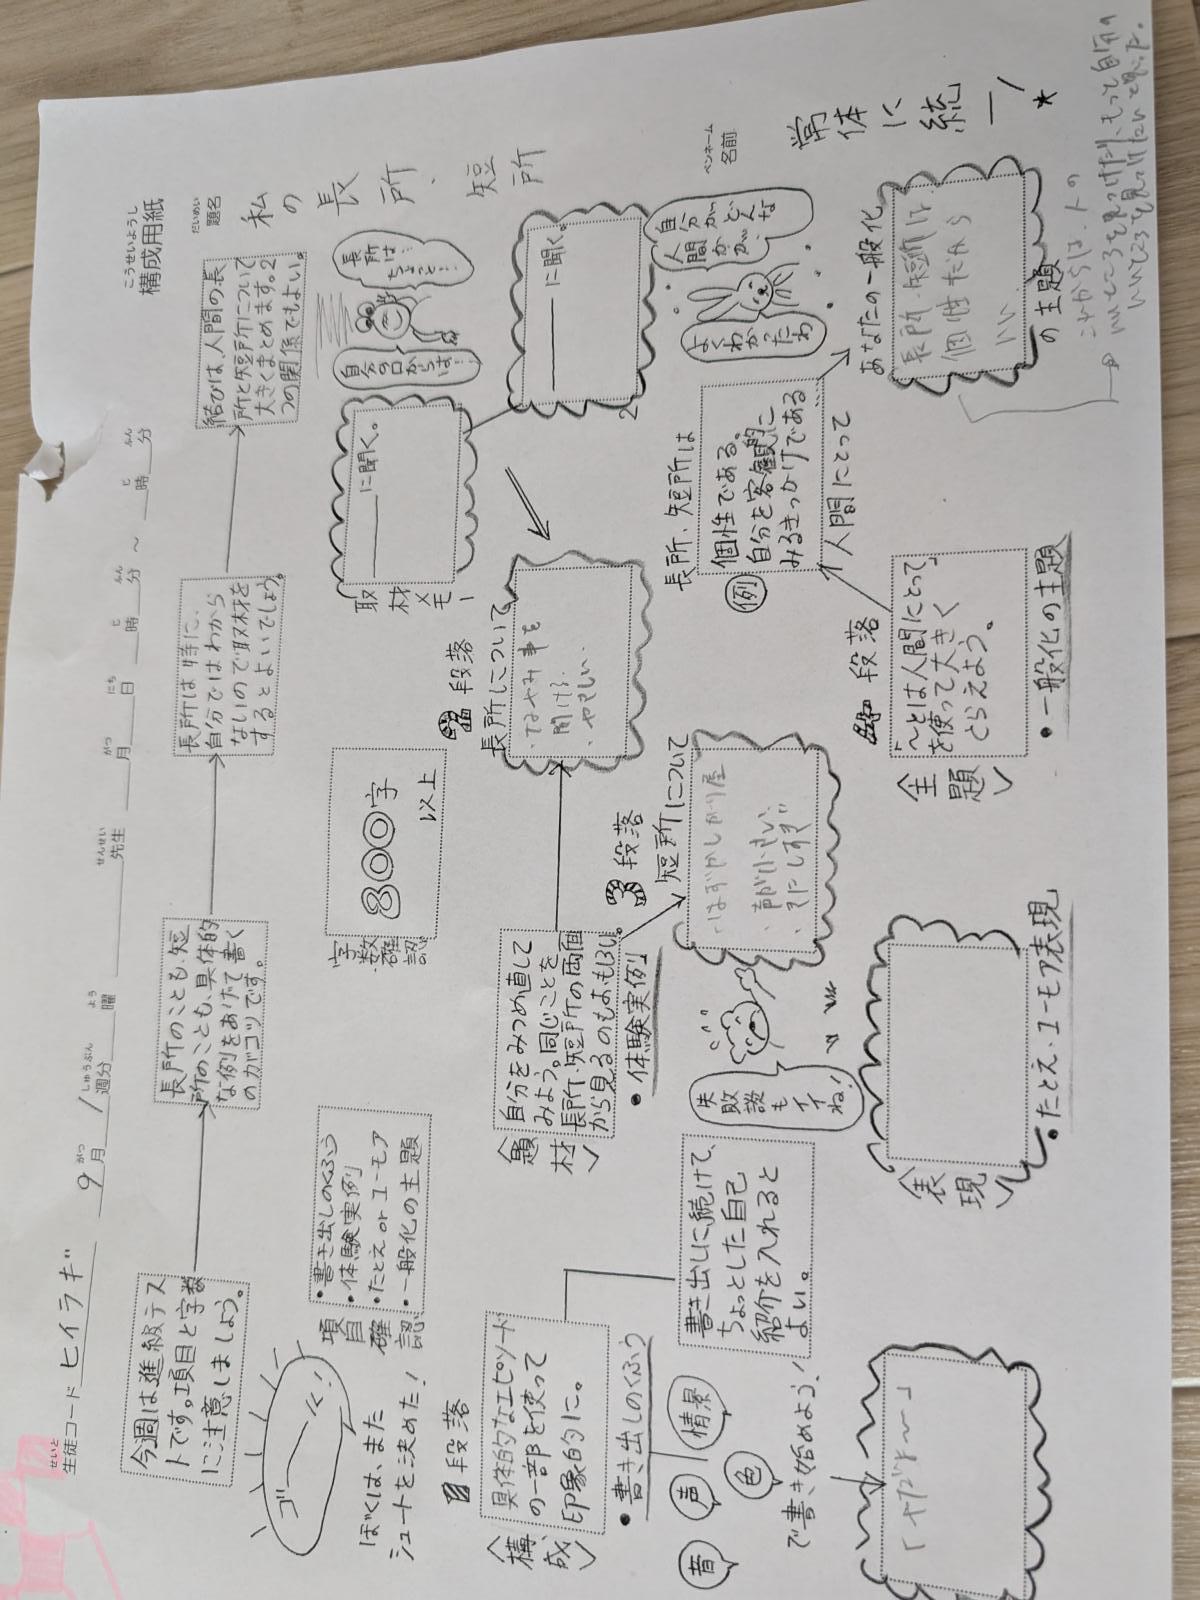 こうせいようし
構成用紙
せいと
生徒コード ヒイラギ
9 がつ 月 1 しゅうぶん 週分 よう 曜 せんせい 先生 がつ 月 にち 日 と 時 ふん 分 ~ と 時 ふん 分
だいめい
題名
私の長所、短所
ペンネーム
名前
常体に統一!
★
今週は進級テス
トです。項目と字数
に注意しましょう。
長所のことも短
所のことも、具体的
な例をあげて書く
のがコツです。
長所は特に、
自分ではわから
ないので取材を
するとよいでしょう。
結びは、人間の長
所と短所について
大きくまとめます。2
つの関係でもよい。
ゴーーー
ぼくは、また
シュートを決めた!
項目確認
・書き出しのくふう
・体験実例
・たとえorユーモア
・一般化の主題
字数確認
800字
以上
取材メモー
に聞く。
に聞く。
2
長所は
ちょっと…
自分の口からは…
自分がどんな
人間かが、
よくわかったわ
段落
〈構成〉
具体的なエピソード
の一部を使って
印象的に。
・書き出しのくふう
音
声
色
情景
で書き始めよう!
書き出しに続けて、
ちょっとした自己
紹介を入れると
よい。
〈題材〉
自分をみつめ直して
みよう。同じことを
長所・短所の両面
から見るのもおもしろい。
・体験実例
失敗談もイイね!
段落
長所について
・なやみ事を
聞ける
・やさしい
段落
短所について
・はずかしがり屋
・声が小さい
・気にしすぎ
〈表現〉
・たとえ・ユーモア表現
段落
〈主題〉
「〜とは人間にとって」
を使って大きく
とらえよう。
・一般化の主題
人間にとって
長所、短所は
例
個性である。
自分を客観的に
みるきっかけである
あなたの一般化
の主題
長所・短所は
個性だから
いい
これからは、人の
いいところを見つけたり、もっと自分の
いいところを見つけたいと思った。